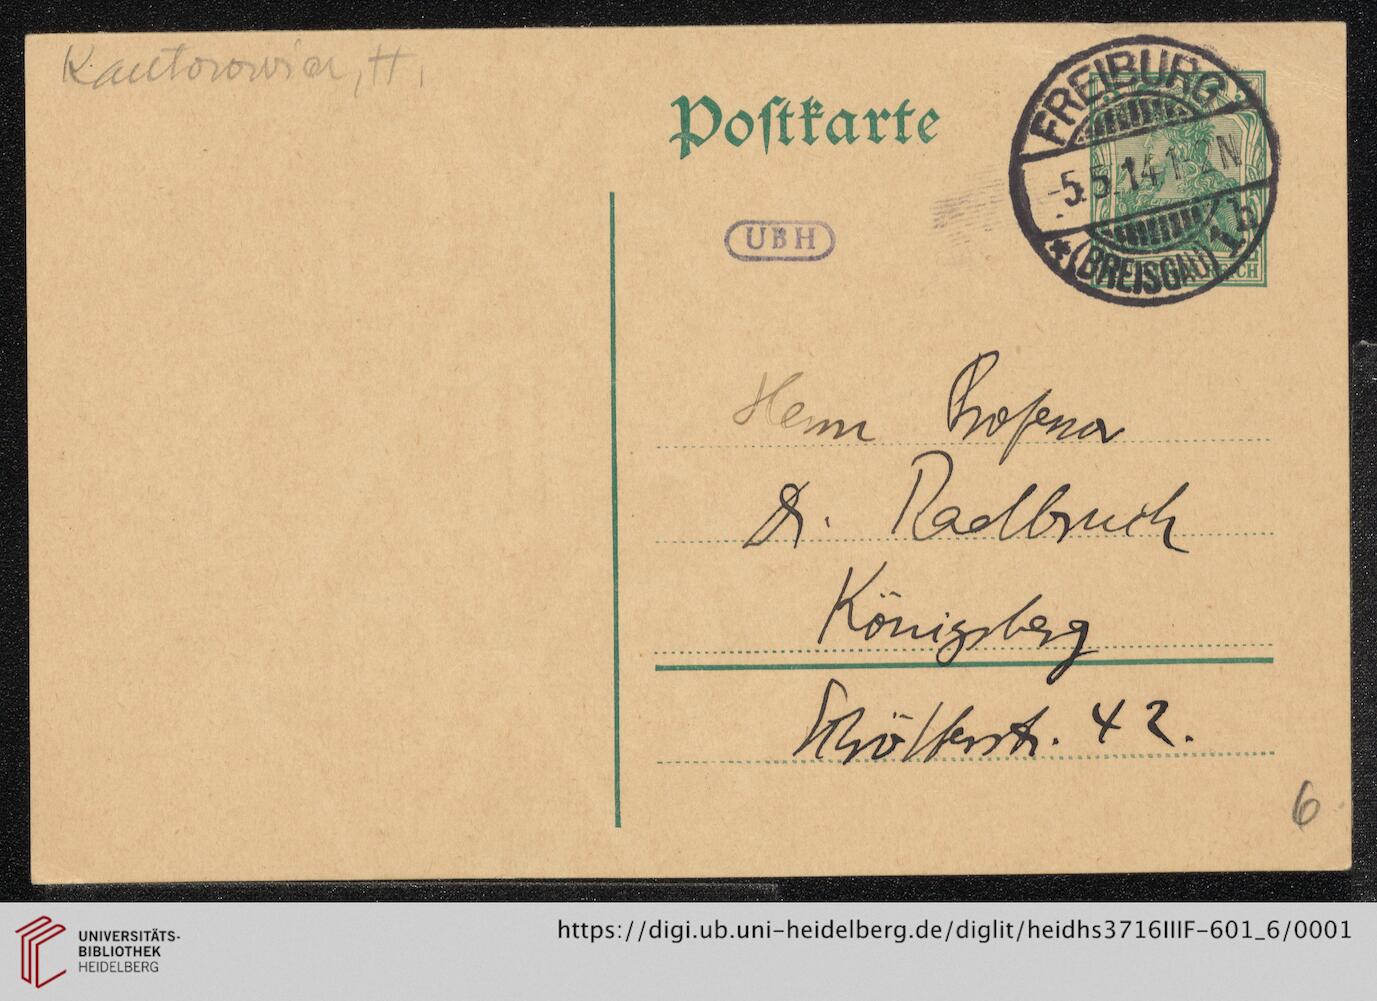 Kantorowicz, H.
Postkarte
FREIBURG
-5.5.14 1-2N
* (BREISGAU) 1h
UBH
Herrn Professor
Dr. Radbruch
Königsberg
42.
6
UNIVERSITÄTS-
BIBLIOTHEK
HEIDELBERG
https://digi.ub.uni-heidelberg.de/diglit/heidhs3716IIIF-601_6/0001